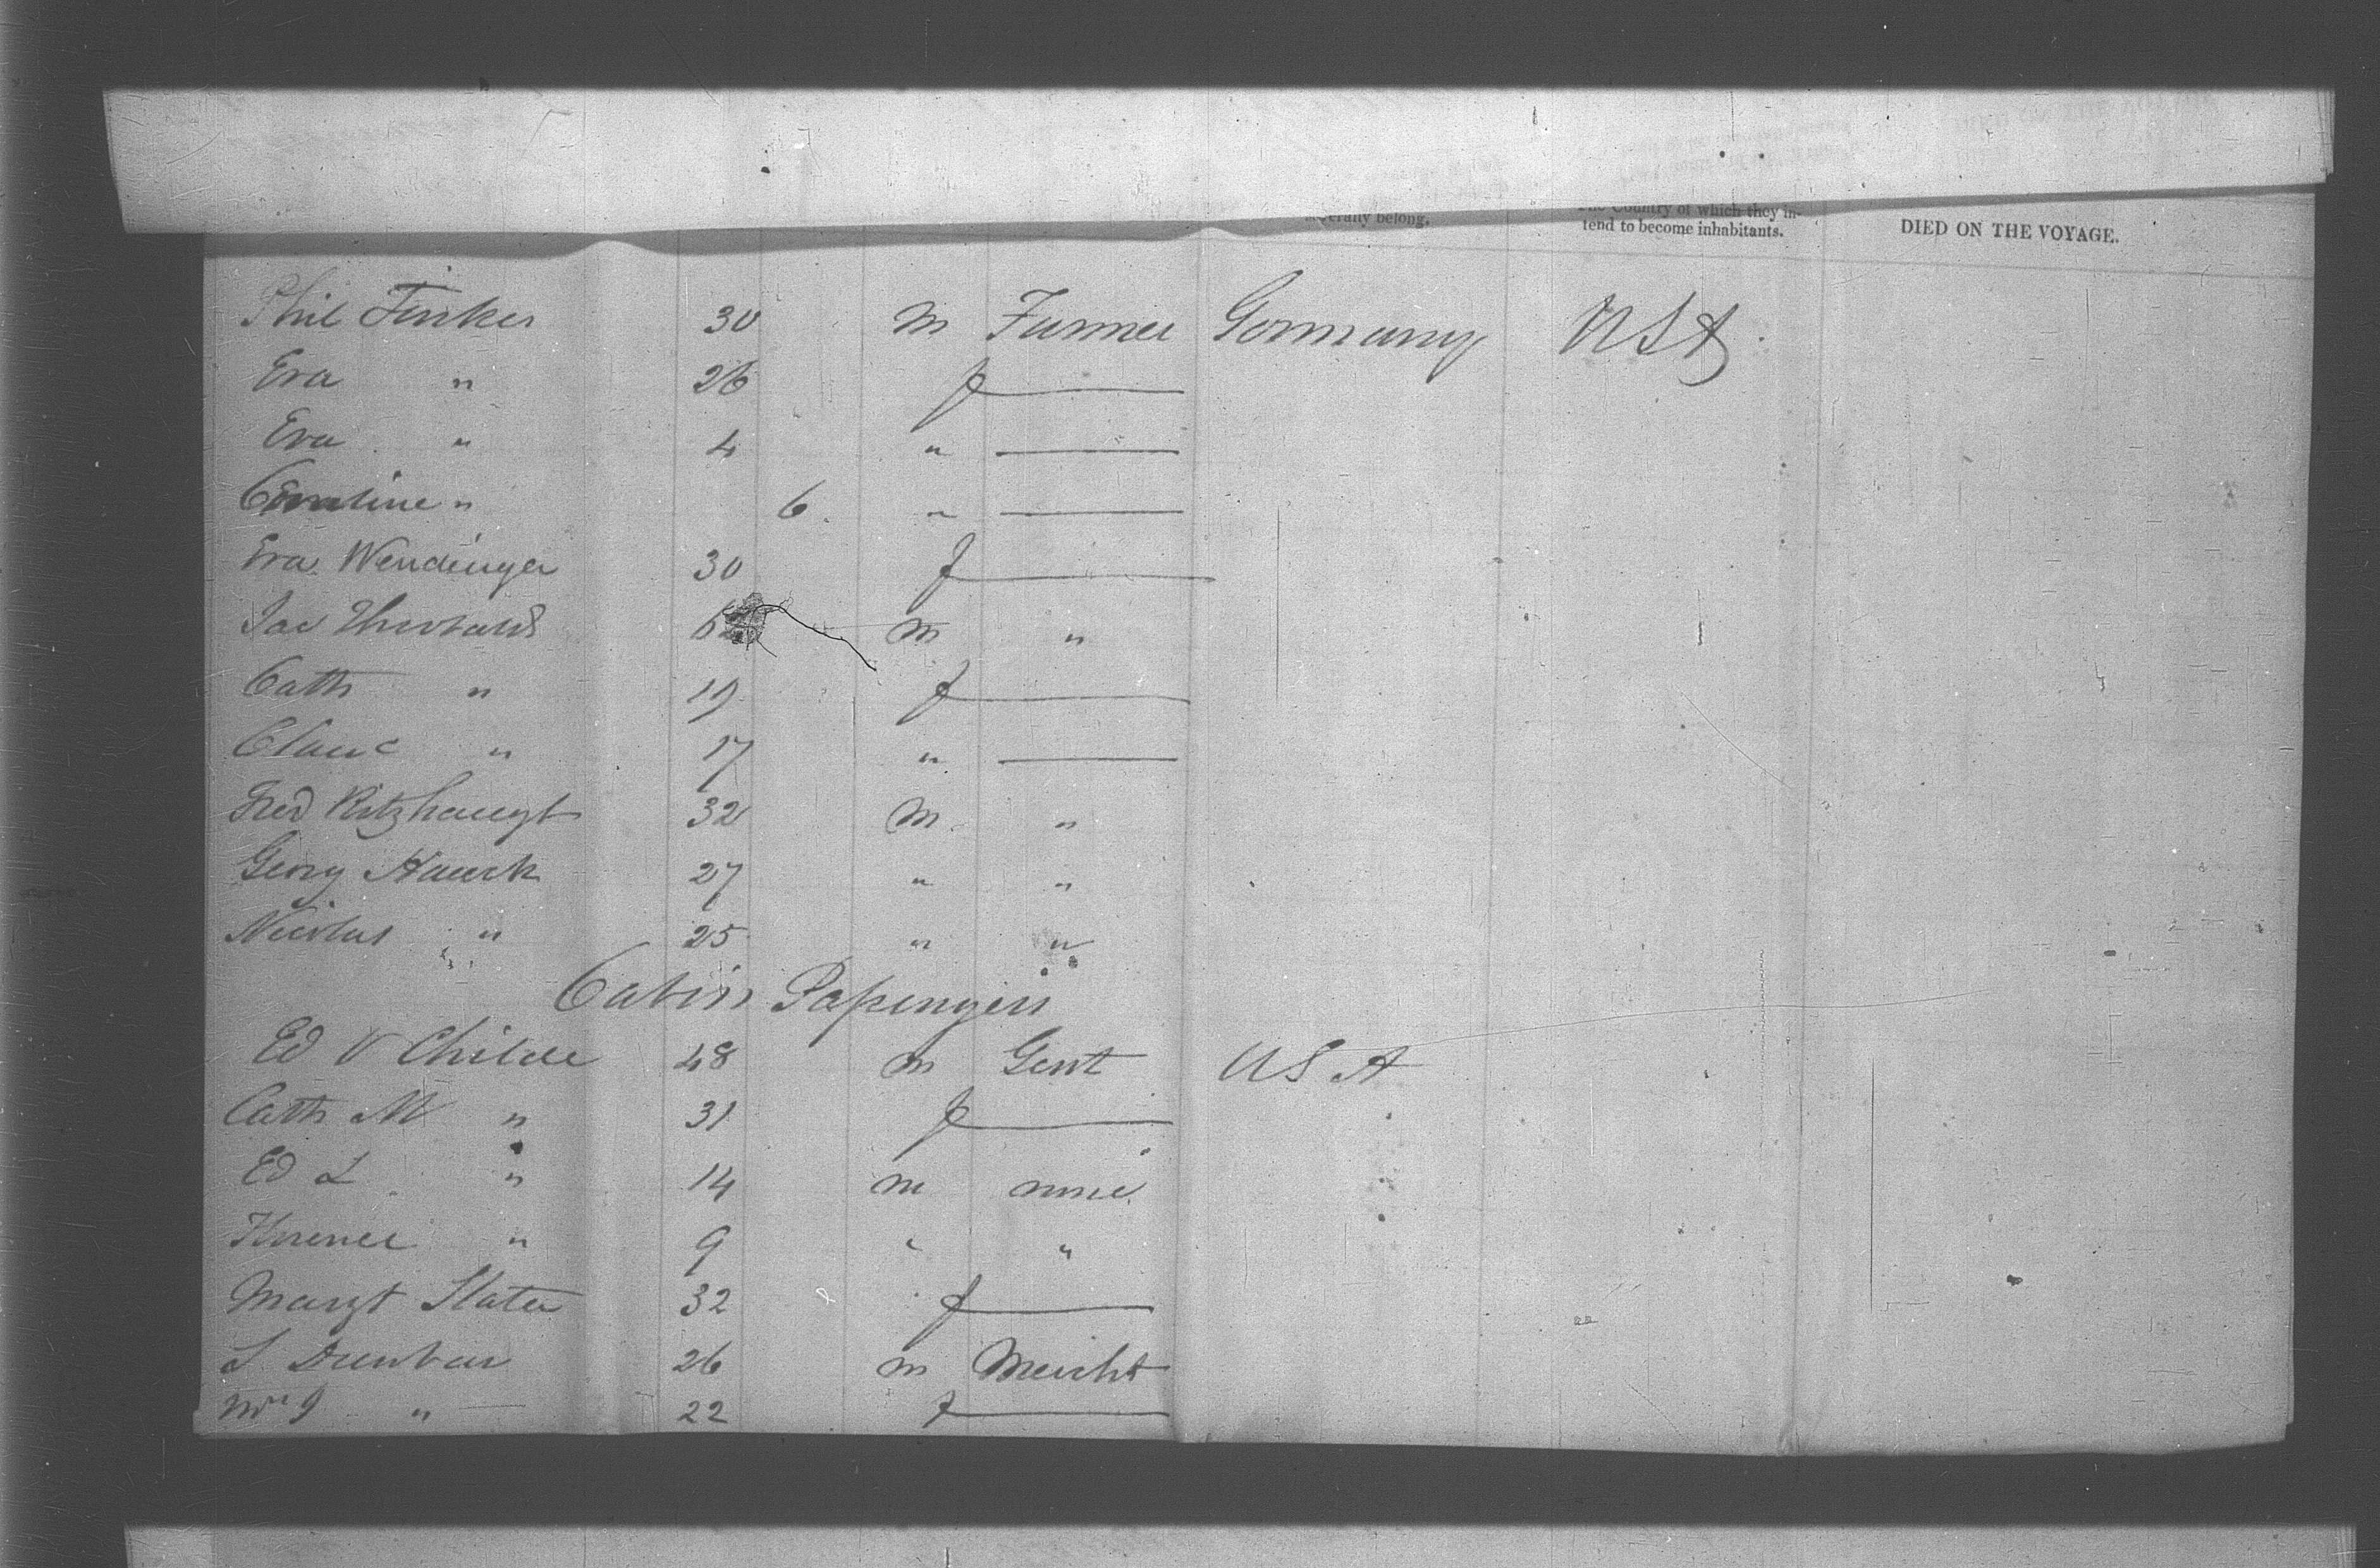 severally belong. The Country of which they in-
tend to become inhabitants. DIED ON THE VOYAGE.
Phil Finker 30 m Farmer Germany USA
Eva " 26 f —
Eva " 4 " —
Caroline " 6 " —
Eva Wendinger 30 f —
Jac m "
Cath " 19 f —
" 17 " —
Fred Ritzhaupt 32 m "
Georg Hauck 27 " "
Nicolas " 25 " "
Cabin Passengers
Ed V Childe 48 m Gent USA
Cath M " 31 f —
Ed L " 14 m none
Florence " 9 " "
Margt Slater 32 f —
S. Dunbar 26 m Mercht
" 22 f —